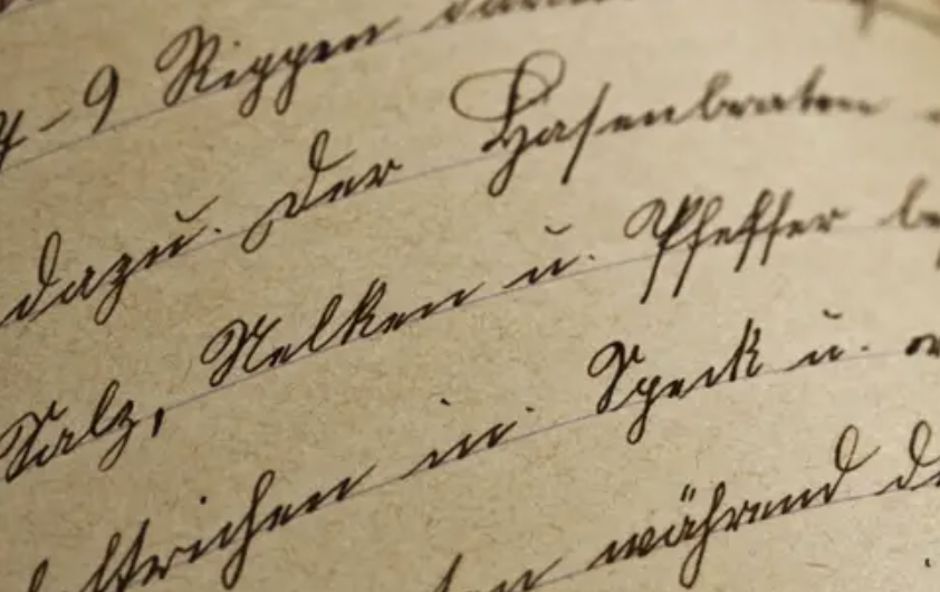 7-9 Rippen
dazu. Der Hasenbraten
Salz, Nelken u. Pfeffer
in Speck u.
während